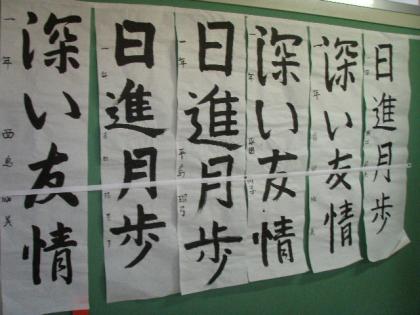 日進月歩
深い友情
一年
深い友情
一年
日進月歩
一年 平島
日進月歩
一年
深い友情
一年 西島